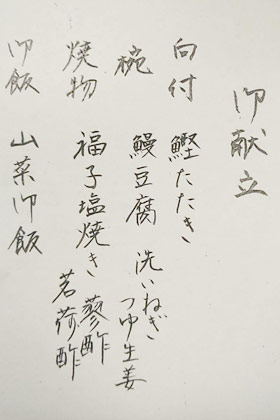 御献立
向付 鰹たたき
椀 鰻豆腐 洗いねぎ
つゆ生姜
焼物 福子塩焼き 蓼酢
茗荷酢
御飯 山菜御飯